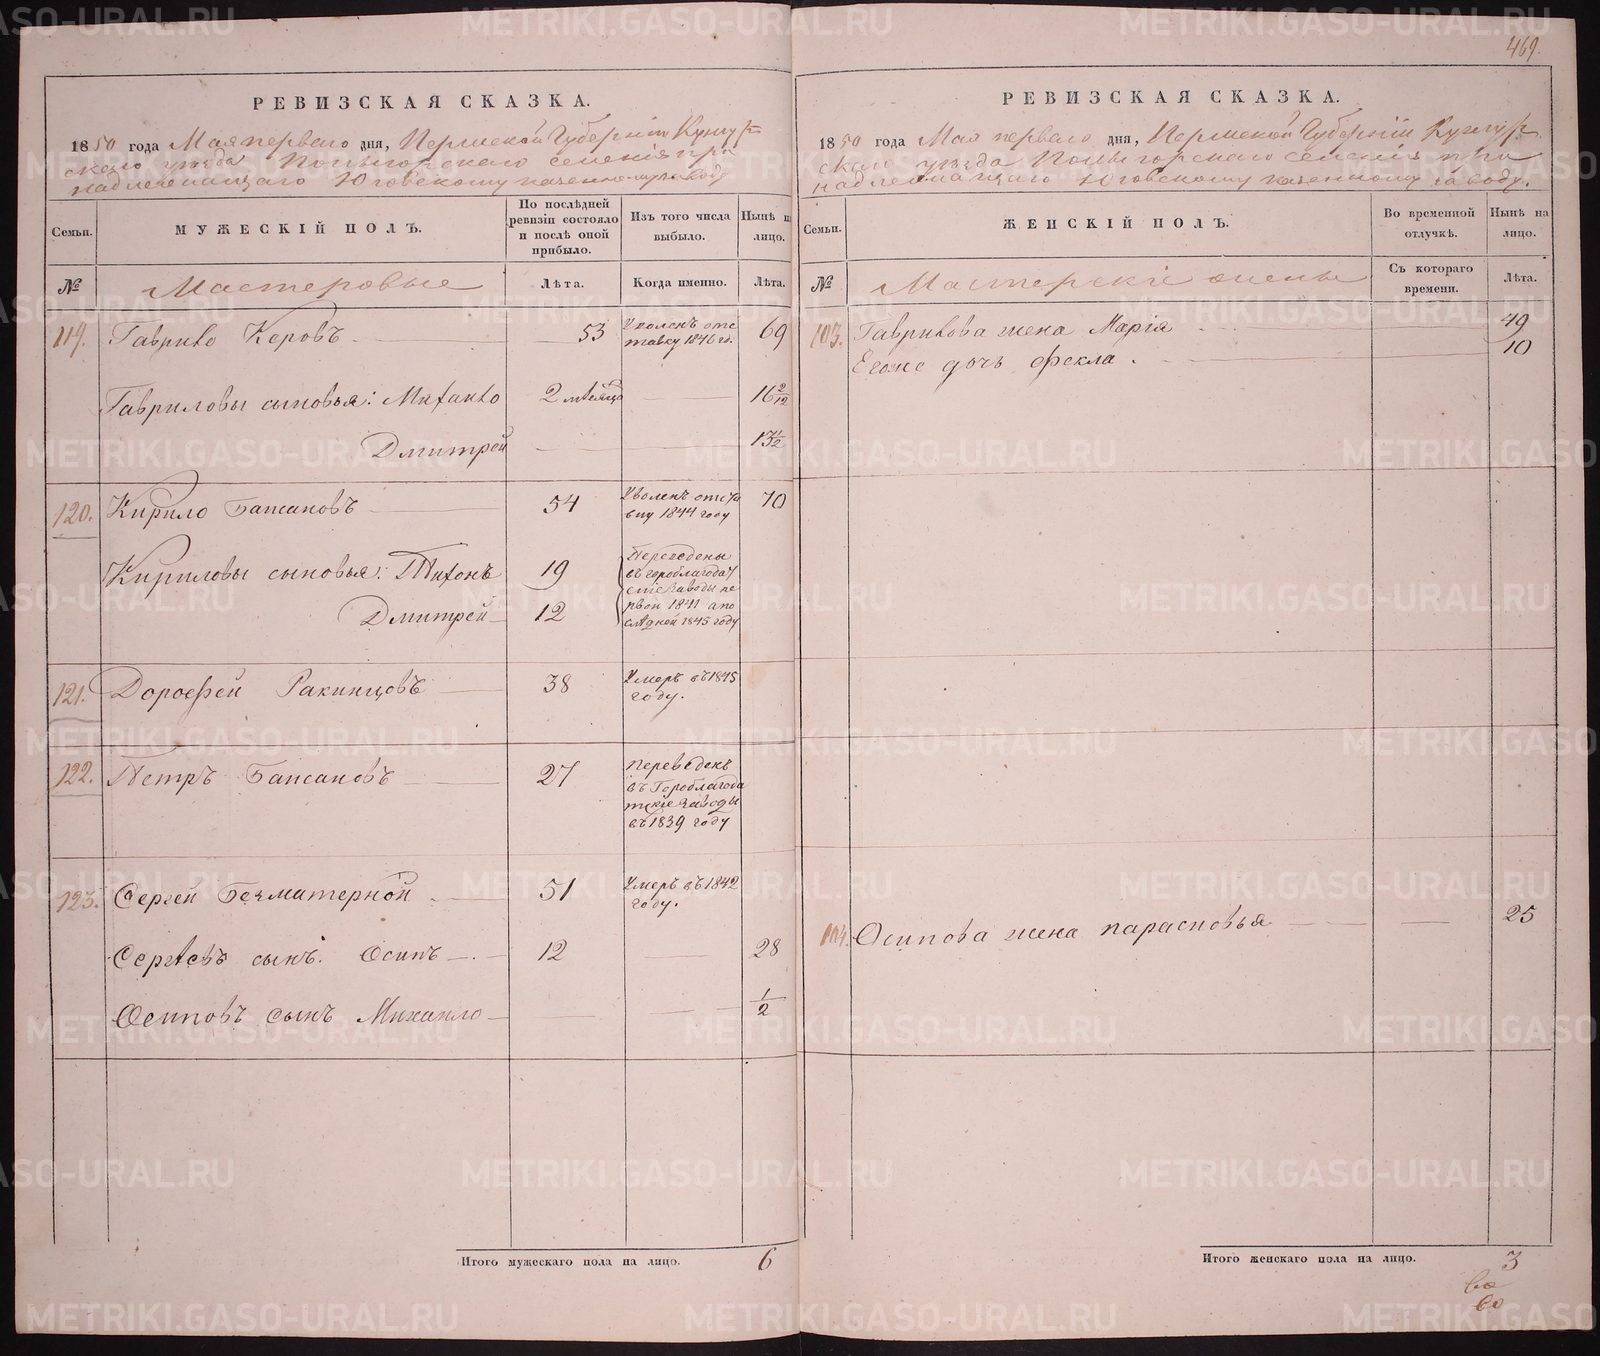 469.
РЕВИЗСКАЯ СКАЗКА.
1850 года Мая перваго дня, Пермской Губернiи Кунгур
скаго уѣзда селенiя при
надлежащаго Юговскому казенному заводу
Семьи.
МУЖЕСКIЙ ПОЛЪ.
По послѣдней ревизiи состояло и послѣ оной прибыло.
Изъ того числа выбыло.
Нынѣ на лицо.
№
Мастеровые
Лѣта.
Когда именно.
Лѣта.
119. Гаврило Керовъ 53 Уволенъ отс
тавку 1846 го. 69
Гавриловы сыновья: Михайло 2 мѣсяца 16 2/12
Дмитрей 13 1/2
120. Кирило Бажановъ 54 Уволенъ отста
вку 1844 году 70
Кириловы сыновья: Тихонъ 19 Переведены
въ гороблагодат
скiе заводы пе
Дмитрей 12 рвой 1841 а по
слѣдней 1845 году
121. Дорофей Ракинцовъ 38 Умеръ въ 1845
году.
122. Петръ Бажановъ 27 Переведенъ
въ Гороблагода
тскiе заводы
въ 1839 году
123. Сергей Безматерной 51 Умеръ въ 1842
году.
Сергѣевъ сынъ: Осипъ 12 28
Осиповъ сынъ Михайло 1/2
Итого мужескаго пола на лицо. 6
РЕВИЗСКАЯ СКАЗКА.
1850 года Мая перваго дня, Пермской Губернiи Кунгур
скаго уѣзда селенiя при
надлежащаго Юговскому казенному заводу.
Семьи.
ЖЕНСКIЙ ПОЛЪ.
Во временной отлучкѣ.
Нынѣ на лицо.
№
Мастерскiе жены
Съ котораго времени.
Лѣта.
103. Гаврилова жена Марiя 49
Егоже дочь Фекла 10
104. Осипова жена парасковья 25
Итого женскаго пола на лицо. 3
METRIKI.GASO-URAL.RU